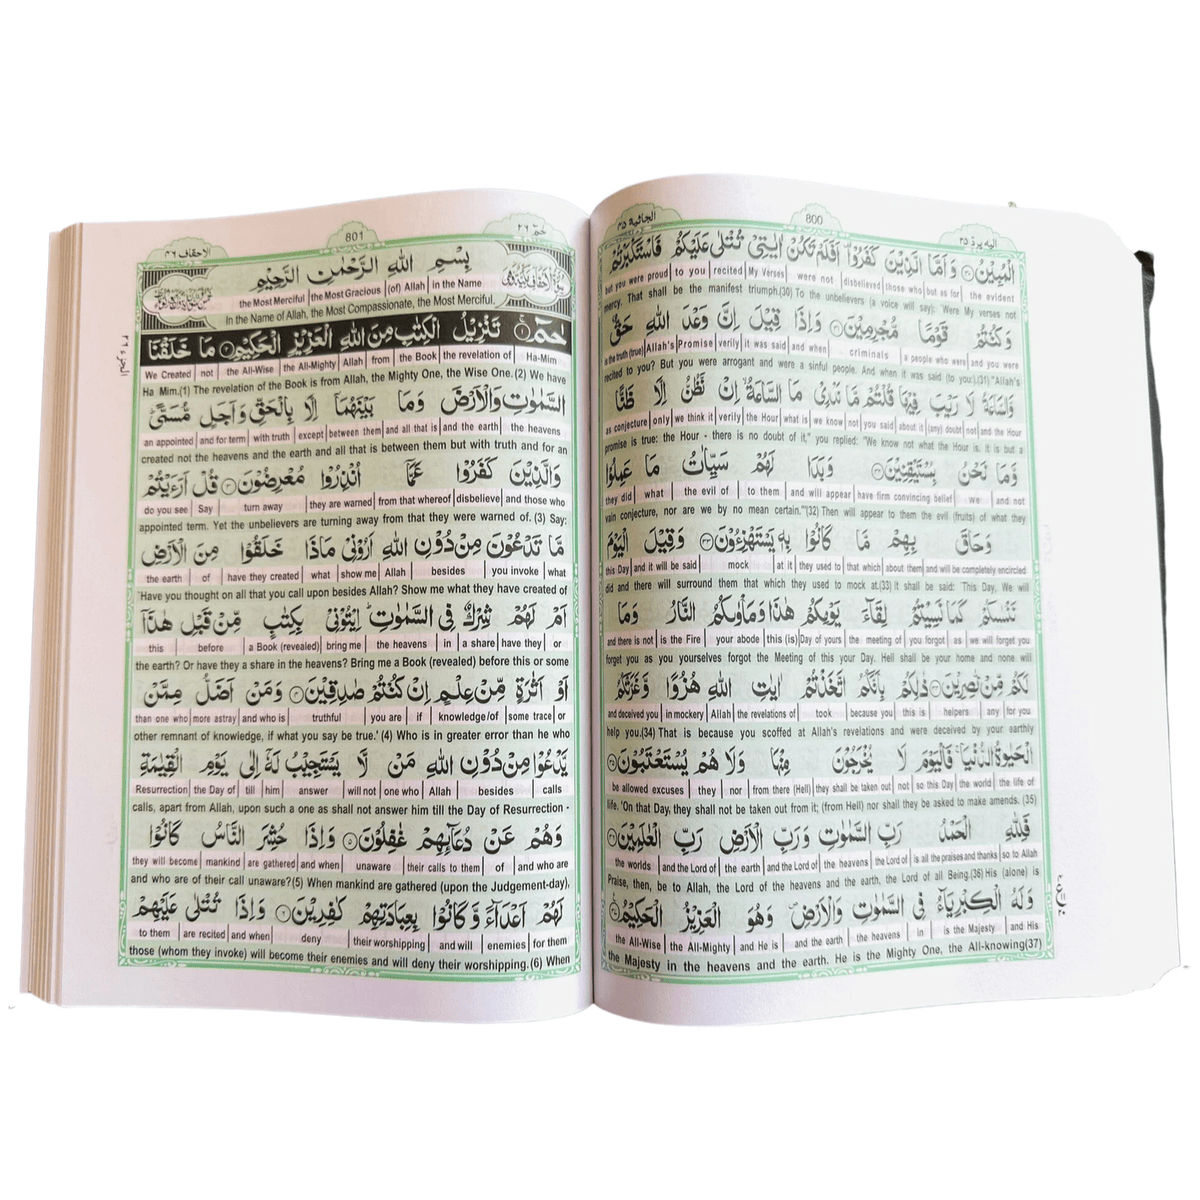 اليه يرد ٢٥
800
الجاثية ٤٥
الْمُبِيْنُ ۝ وَاَمَّا الَّذِيْنَ كَفَرُوْا اَفَلَمْ تَكُنْ اٰيٰتِيْ تُتْلٰى عَلَيْكُمْ فَاسْتَكْبَرْتُمْ
but you were proud | to you | recited | My Verses | were not | disbelieved | those who | but as for | the evident
mercy. That shall be the manifest triumph.(30) To the unbelievers (a voice will say): 'Were My verses not
وَكُنْتُمْ قَوْمًا مُّجْرِمِيْنَ ۝ وَاِذَا قِيْلَ اِنَّ وَعْدَ اللهِ حَقٌّ
is the truth (true) | Allah's | Promise | verily | it was said | and when | criminals | a people who were | and you were
recited to you? But you were arrogant and were a sinful people. And when it was said (to you:).(31) "Allah's
وَّالسَّاعَةُ لَا رَيْبَ فِيْهَا قُلْتُمْ مَّا نَدْرِيْ مَا السَّاعَةُ اِنْ نَّظُنُّ اِلَّا ظَنًّا
as conjecture | only | we think it | verily | the Hour | what is | we know | not | you said | about it | (any) doubt | not | and the Hour
promise is true: the Hour - there is no doubt of it," you replied: "We know not what the Hour is. It is but a
وَّمَا نَحْنُ بِمُسْتَيْقِنِيْنَ ۝ وَبَدَا لَهُمْ سَيِّاٰتُ مَا عَمِلُوْا
they did | what | the evil of | to them | and will appear | have firm convincing belief | we | and not
vain conjecture, nor are we by no mean certain."'(32) Then will appear to them the evil (fruits) of what they
وَحَاقَ بِهِمْ مَّا كَانُوْا بِهٖ يَسْتَهْزِءُوْنَ ۝ وَقِيْلَ الْيَوْمَ
this Day | and it will be said | mock | at it | they used to | that which | about them | and will be completely encircled
did and there will surround them that which they used to mock at.(33) It shall be said: 'This Day, We will
نَنْسٰىكُمْ كَمَا نَسِيْتُمْ لِقَآءَ يَوْمِكُمْ هٰذَا وَمَاْوٰىكُمُ النَّارُ وَمَا
and there is not | is the Fire | your abode | this (is) | Day of yours | the meeting of | you forgot | as | we will forget you
forget you as you yourselves forgot the Meeting of this your Day. Hell shall be your home and none will
لَكُمْ مِّنْ نّٰصِرِيْنَ ۝ ذٰلِكُمْ بِاَنَّكُمُ اتَّخَذْتُمْ اٰيٰتِ اللهِ هُزُوًا وَّغَرَّتْكُمُ
and deceived you | in mockery | Allah | the revelations of | took | because you | this is | helpers | any | for you
help you.(34) That is because you scoffed at Allah's revelations and were deceived by your earthly
الْحَيٰوةُ الدُّنْيَا فَالْيَوْمَ لَا يُخْرَجُوْنَ مِنْهَا وَلَا هُمْ يُسْتَعْتَبُوْنَ ۝
be allowed excuses | they | nor | from there (Hell) | they shall be taken out | not | so this Day | the world | the life of
life. 'On that Day, they shall not be taken out from it; (from Hell) nor shall they be asked to make amends. (35)
فَلِلّٰهِ الْحَمْدُ رَبِّ السَّمٰوٰتِ وَرَبِّ الْاَرْضِ رَبِّ الْعٰلَمِيْنَ ۝
the worlds | and the Lord of | the earth | and the Lord of | the heavens | the Lord of | is all the praises and thanks | so to Allah
Praise, then, be to Allah, the Lord of the heavens and the earth, the Lord of all Being.(36) His (alone) is
وَلَهُ الْكِبْرِيَآءُ فِي السَّمٰوٰتِ وَالْاَرْضِ وَهُوَ الْعَزِيْزُ الْحَكِيْمُ ۝
the All-Wise | the All-Mighty | and He is | and the earth | the heavens | in | is the Majesty | and His
the Majesty in the heavens and the earth. He is the Mighty One, the All-knowing(37)
حٰم ٢٦
801
الاحقاف ٤٦
بِسْمِ اللهِ الرَّحْمٰنِ الرَّحِيْمِ
the Most Merciful | the Most Gracious | (of) Allah | in the Name
In the Name of Allah, the Most Compassionate, the Most Merciful.
حٰمٓ ۝ تَنْزِيْلُ الْكِتٰبِ مِنَ اللهِ الْعَزِيْزِ الْحَكِيْمِ ۝ مَا خَلَقْنَا
We Created | not | the All-Wise | the All-Mighty | Allah | from | the Book | the revelation of | Ha-Mim
Ha Mim.(1) The revelation of the Book is from Allah, the Mighty One, the Wise One.(2) We have
السَّمٰوٰتِ وَالْاَرْضَ وَمَا بَيْنَهُمَا اِلَّا بِالْحَقِّ وَاَجَلٍ مُّسَمًّى
an appointed | and for term | with truth | except | between them | and all that is | and the earth | the heavens
created not the heavens and the earth and all that is between them but with truth and for an
وَالَّذِيْنَ كَفَرُوْا عَمَّا اُنْذِرُوْا مُعْرِضُوْنَ ۝ قُلْ اَرَءَيْتُمْ
do you see | Say | turn away | they are warned | from that whereof | disbelieve | and those who
appointed term. Yet the unbelievers are turning away from that they were warned of. (3) Say:
مَّا تَدْعُوْنَ مِنْ دُوْنِ اللهِ اَرُوْنِيْ مَاذَا خَلَقُوْا مِنَ الْاَرْضِ
the earth | of | have they created | what | show me | Allah | besides | you invoke | what
'Have you thought on all that you call upon besides Allah? Show me what they have created of
اَمْ لَهُمْ شِرْكٌ فِي السَّمٰوٰتِ اِيْتُوْنِيْ بِكِتٰبٍ مِّنْ قَبْلِ هٰذَآ
this | before | a Book (revealed) | bring me | the heavens | in | a share | have they | or
the earth? Or have they a share in the heavens? Bring me a Book (revealed) before this or some
اَوْ اَثٰرَةٍ مِّنْ عِلْمٍ اِنْ كُنْتُمْ صٰدِقِيْنَ ۝ وَمَنْ اَضَلُّ مِمَّنْ
than one who | more astray | and who is | truthful | you are | if | knowledge/of | some trace | or
other remnant of knowledge, if what you say be true.' (4) Who is in greater error than he who
يَّدْعُوْا مِنْ دُوْنِ اللهِ مَنْ لَّا يَسْتَجِيْبُ لَهٗٓ اِلٰى يَوْمِ الْقِيٰمَةِ
Resurrection | the Day of | till | him | answer | will not | one who | Allah | besides | calls
calls, apart from Allah, upon such a one as shall not answer him till the Day of Resurrection -
وَهُمْ عَنْ دُعَآئِهِمْ غٰفِلُوْنَ ۝ وَاِذَا حُشِرَ النَّاسُ كَانُوْا
they will become | mankind | are gathered | and when | unaware | their calls to them | of | and who are
and who are of their call unaware?(5) When mankind are gathered (upon the Judgement-day),
لَهُمْ اَعْدَآءً وَّكَانُوْا بِعِبَادَتِهِمْ كٰفِرِيْنَ ۝ وَاِذَا تُتْلٰى عَلَيْهِمْ
to them | are recited | and when | deny | their worshipping | and will | enemies | for them
those (whom they invoke) will become their enemies and will deny their worshipping.(6) When